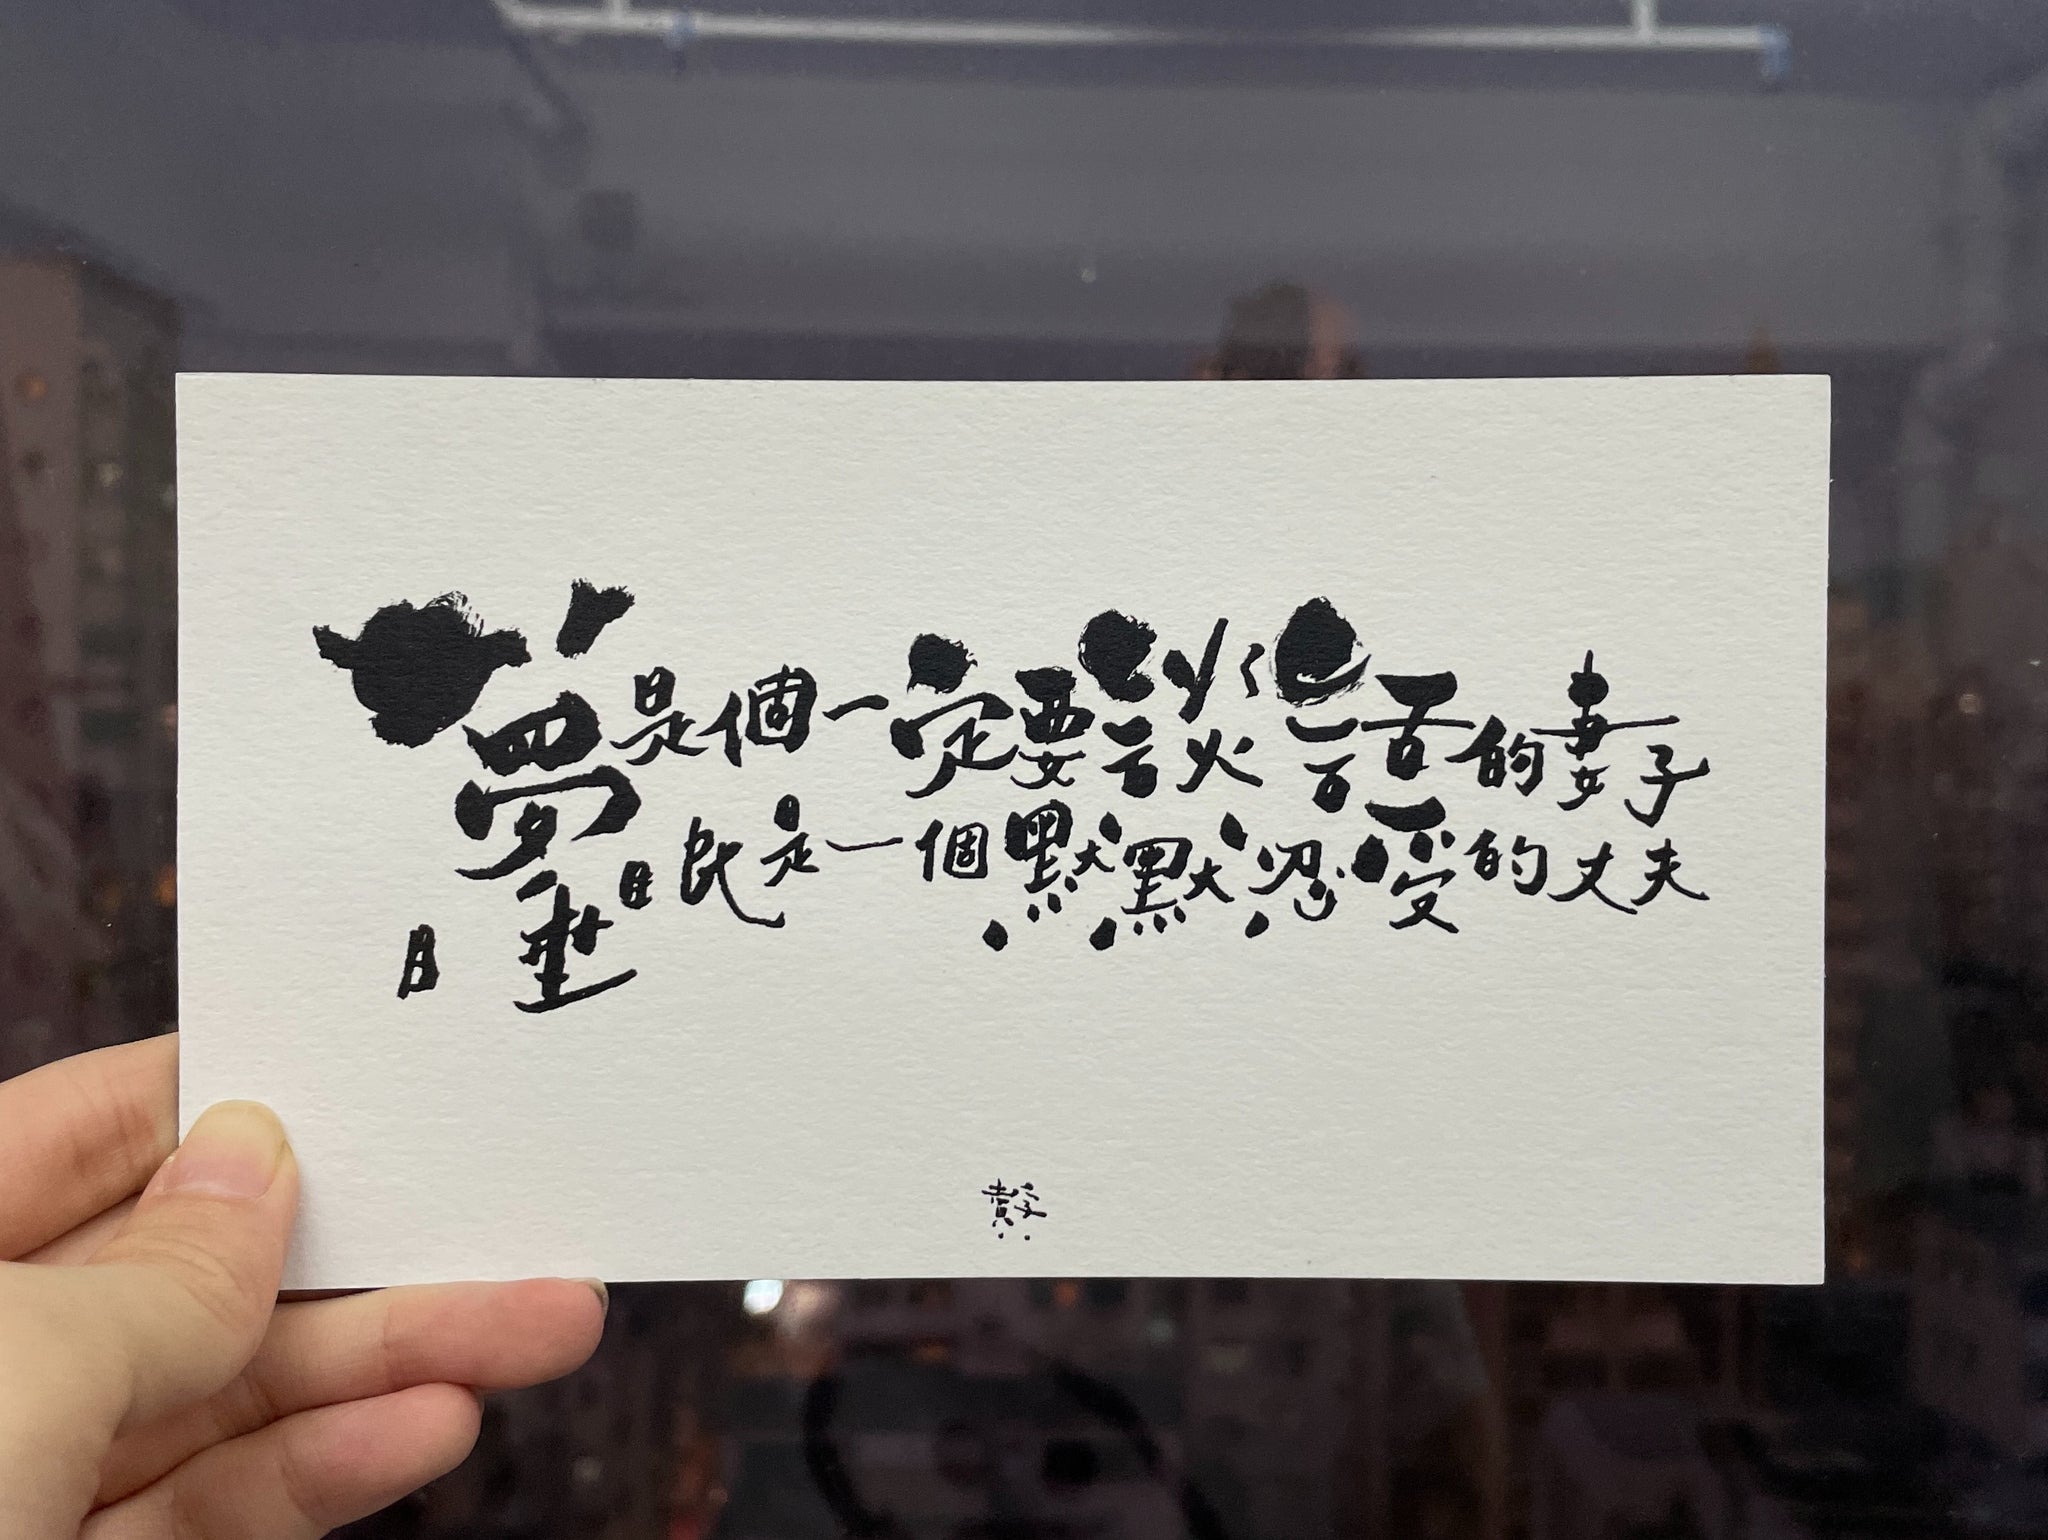 夢是個一定要談話的妻子
睡眠是一個默默忍受的丈夫